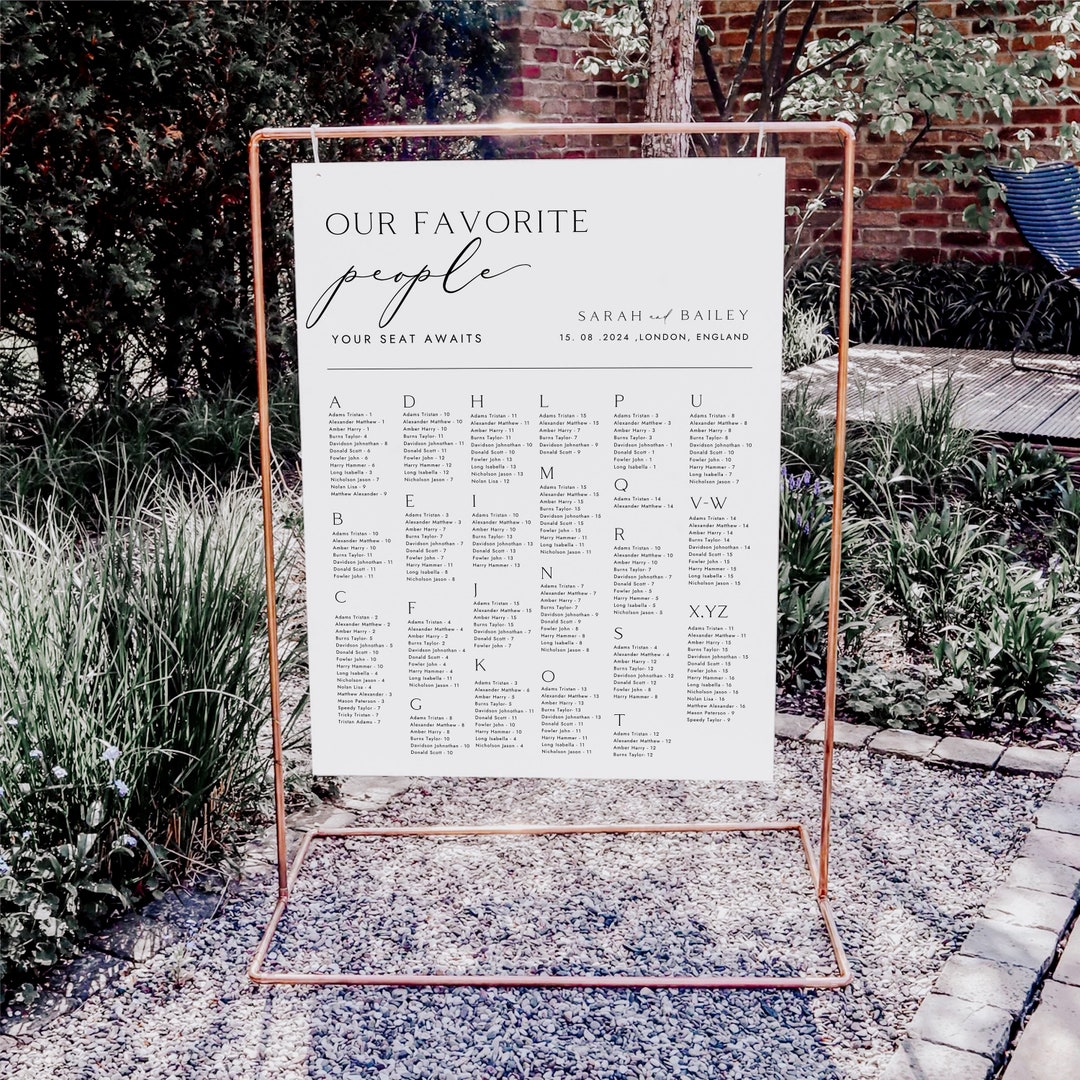 OUR FAVORITE
people
YOUR SEAT AWAITS
SARAH and BAILEY
15. 08 .2024 ,LONDON, ENGLAND
A
Adams Tristan - 1
Alexander Matthew - 1
Amber Harry - 1
Burns Taylor- 4
Davidson Johnothan - 8
Donald Scott - 6
Fowler John - 6
Harry Hammer - 6
Long Isabella - 3
Nicholson Jason - 3
Nolan Lisa - 9
Matthew Alexander - 9
B
Adams Tristan - 10
Alexander Matthew - 10
Amber Harry - 10
Burns Taylor - 11
Davidson Johnothan - 11
Donald Scott - 11
Fowler John - 11
C
Adams Tristan - 2
Alexander Matthew - 2
Amber Harry - 2
Burns Taylor- 5
Davidson Johnothan - 5
Donald Scott - 10
Fowler John - 10
Harry Hammer - 10
Long Isabella - 4
Nicholson Jason - 4
Nolan Lisa - 4
Matthew Alexander - 3
Mason Peterson - 3
Speedy Taylor - 7
Tricky Tristan - 7
Tristan Adams - 7
D
Adams Tristan - 10
Alexander Matthew - 10
Amber Harry - 10
Burns Taylor- 10
Davidson Johnothan - 11
Donald Scott - 11
Fowler John - 11
Harry Hammer - 12
Long Isabella - 12
Nicholson Jason - 12
E
Adams Tristan - 3
Alexander Matthew - 3
Amber Harry - 7
Burns Taylor- 7
Davidson Johnothan - 7
Donald Scott - 7
Fowler John - 7
Harry Hammer - 11
Long Isabella - 8
Nicholson Jason - 8
F
Adams Tristan - 4
Alexander Matthew - 4
Amber Harry - 4
Burns Taylor- 2
Davidson Johnothan - 4
Donald Scott - 4
Fowler John - 4
Harry Hammer - 11
Long Isabella - 11
Nicholson Jason - 11
G
Adams Tristan - 8
Alexander Matthew - 8
Amber Harry - 8
Burns Taylor- 10
Davidson Johnothan - 10
Donald Scott - 10
H
Adams Tristan - 11
Alexander Matthew - 11
Amber Harry - 11
Burns Taylor- 11
Davidson Johnothan - 13
Donald Scott - 13
Fowler John - 13
Long Isabella - 13
Nicholson Jason - 13
Nolan Lisa - 12
I
Adams Tristan - 10
Alexander Matthew - 10
Amber Harry - 10
Burns Tristan - 10
Davidson Johnothan - 13
Donald Scott - 13
Fowler John - 13
Harry Hammer - 13
J
Adams Tristan - 15
Alexander Matthew - 15
Amber Harry - 15
Burns Taylor- 15
Davidson Johnothan - 7
Donald Scott - 7
Fowler John - 7
K
Adams Tristan - 3
Alexander Matthew - 6
Amber Harry - 5
Burns Tristan- 5
Davidson Johnothan - 11
Donald Scott - 11
Fowler John - 10
Harry Hammer - 10
Long Isabella - 4
Nicholson Jason - 4
L
Adams Tristan - 15
Alexander Matthew - 15
Amber Harry - 15
Burns Taylor- 9
Davidson Johnothan - 9
Donald Scott - 9
M
Adams Tristan - 15
Alexander Matthew - 15
Amber Harry - 15
Burns Taylor- 15
Davidson Johnothan - 15
Donald Scott - 15
Fowler John - 15
Harry Hammer - 11
Long Isabella - 11
Nicholson Jason - 11
N
Adams Tristan - 7
Alexander Matthew - 7
Amber Harry - 7
Burns Taylor- 7
Davidson Johnothan - 9
Donald Scott - 9
Fowler John - 9
Harry Hammer - 15
Long Isabella - 15
Nicholson Jason - 15
O
Adams Tristan - 13
Alexander Matthew - 13
Amber Harry - 13
Burns Taylor- 13
Davidson Johnothan - 11
Donald Scott - 11
Fowler John - 11
Harry Hammer - 11
Long Isabella - 11
Nicholson Jason - 11
P
Adams Tristan - 3
Alexander Matthew - 3
Amber Harry - 3
Burns Taylor- 3
Davidson Johnothan - 1
Donald Scott - 1
Fowler John - 1
Long Isabella - 1
Q
Adams Tristan - 14
Alexander Matthew - 14
R
Adams Tristan - 10
Alexander Matthew - 10
Amber Harry - 10
Burns Taylor- 10
Davidson Johnothan - 5
Donald Scott - 5
Fowler John - 5
Harry Hammer - 5
Long Isabella - 5
Nicholson Jason - 5
S
Adams Tristan - 4
Alexander Matthew - 4
Amber Harry - 12
Burns Taylor- 12
Davidson Johnothan - 12
Donald Scott - 12
Fowler John - 8
Harry Hammer - 11
T
Adams Tristan - 12
Alexander Matthew - 12
Amber Harry - 12
Burns Taylor- 12
U
Adams Tristan - 8
Alexander Matthew - 8
Amber Harry - 8
Burns Taylor- 8
Davidson Johnothan - 10
Donald Scott - 10
Fowler John - 7
Harry Hammer - 7
Long Isabella - 7
Nicholson Jason - 7
V-W
Adams Tristan - 14
Alexander Matthew - 14
Amber Harry - 14
Burns Taylor - 14
Davidson Johnothan - 14
Donald Scott - 14
Fowler John - 15
Harry Hammer - 15
Long Isabella - 15
Nicholson Jason - 15
X,YZ
Adams Tristan - 11
Alexander Matthew - 11
Amber Harry - 11
Burns Taylor- 15
Davidson Johnothan - 15
Donald Scott - 15
Fowler John - 15
Harry Hammer - 15
Long Isabella - 16
Nicholson Jason - 16
Nolan Lisa - 16
Matthew Alexander - 16
Mason Peterson - 9
Speedy Taylor - 9